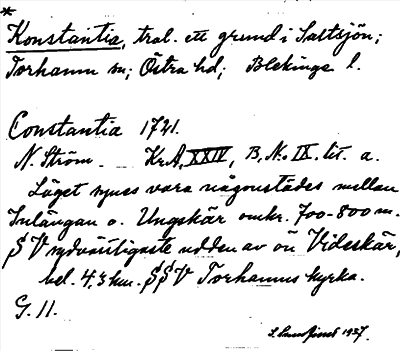 *
Konstantia, trol. ett grund i Saltsjön;
Torhamn sn; Östra hd; Blekinge l.
Constantia 1741.
N. Ström. KrA, XXIV, B, No. IX. lit. a.
Läget synes vara någonstädes mellan
Inlängan o. Ungskär omkr. 700-800 m.
SV sydvästligaste udden av ön Videskär,
bel. 4,3 km. SSV Torhamns kyrka.
G. 11.
1937.